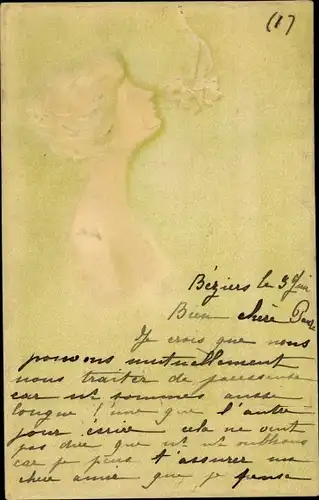 (1)
Béziers le 3 Juin
Bien chère
Je crois que nous
pouvons mutuellement
nous traiter de paresseuse
car nt sommes aussi
longue l'une que l'autre
pour écrire cela ne veut
pas dire que nt nt oublions
car je puis t'assurer ma
chère amie que je pense